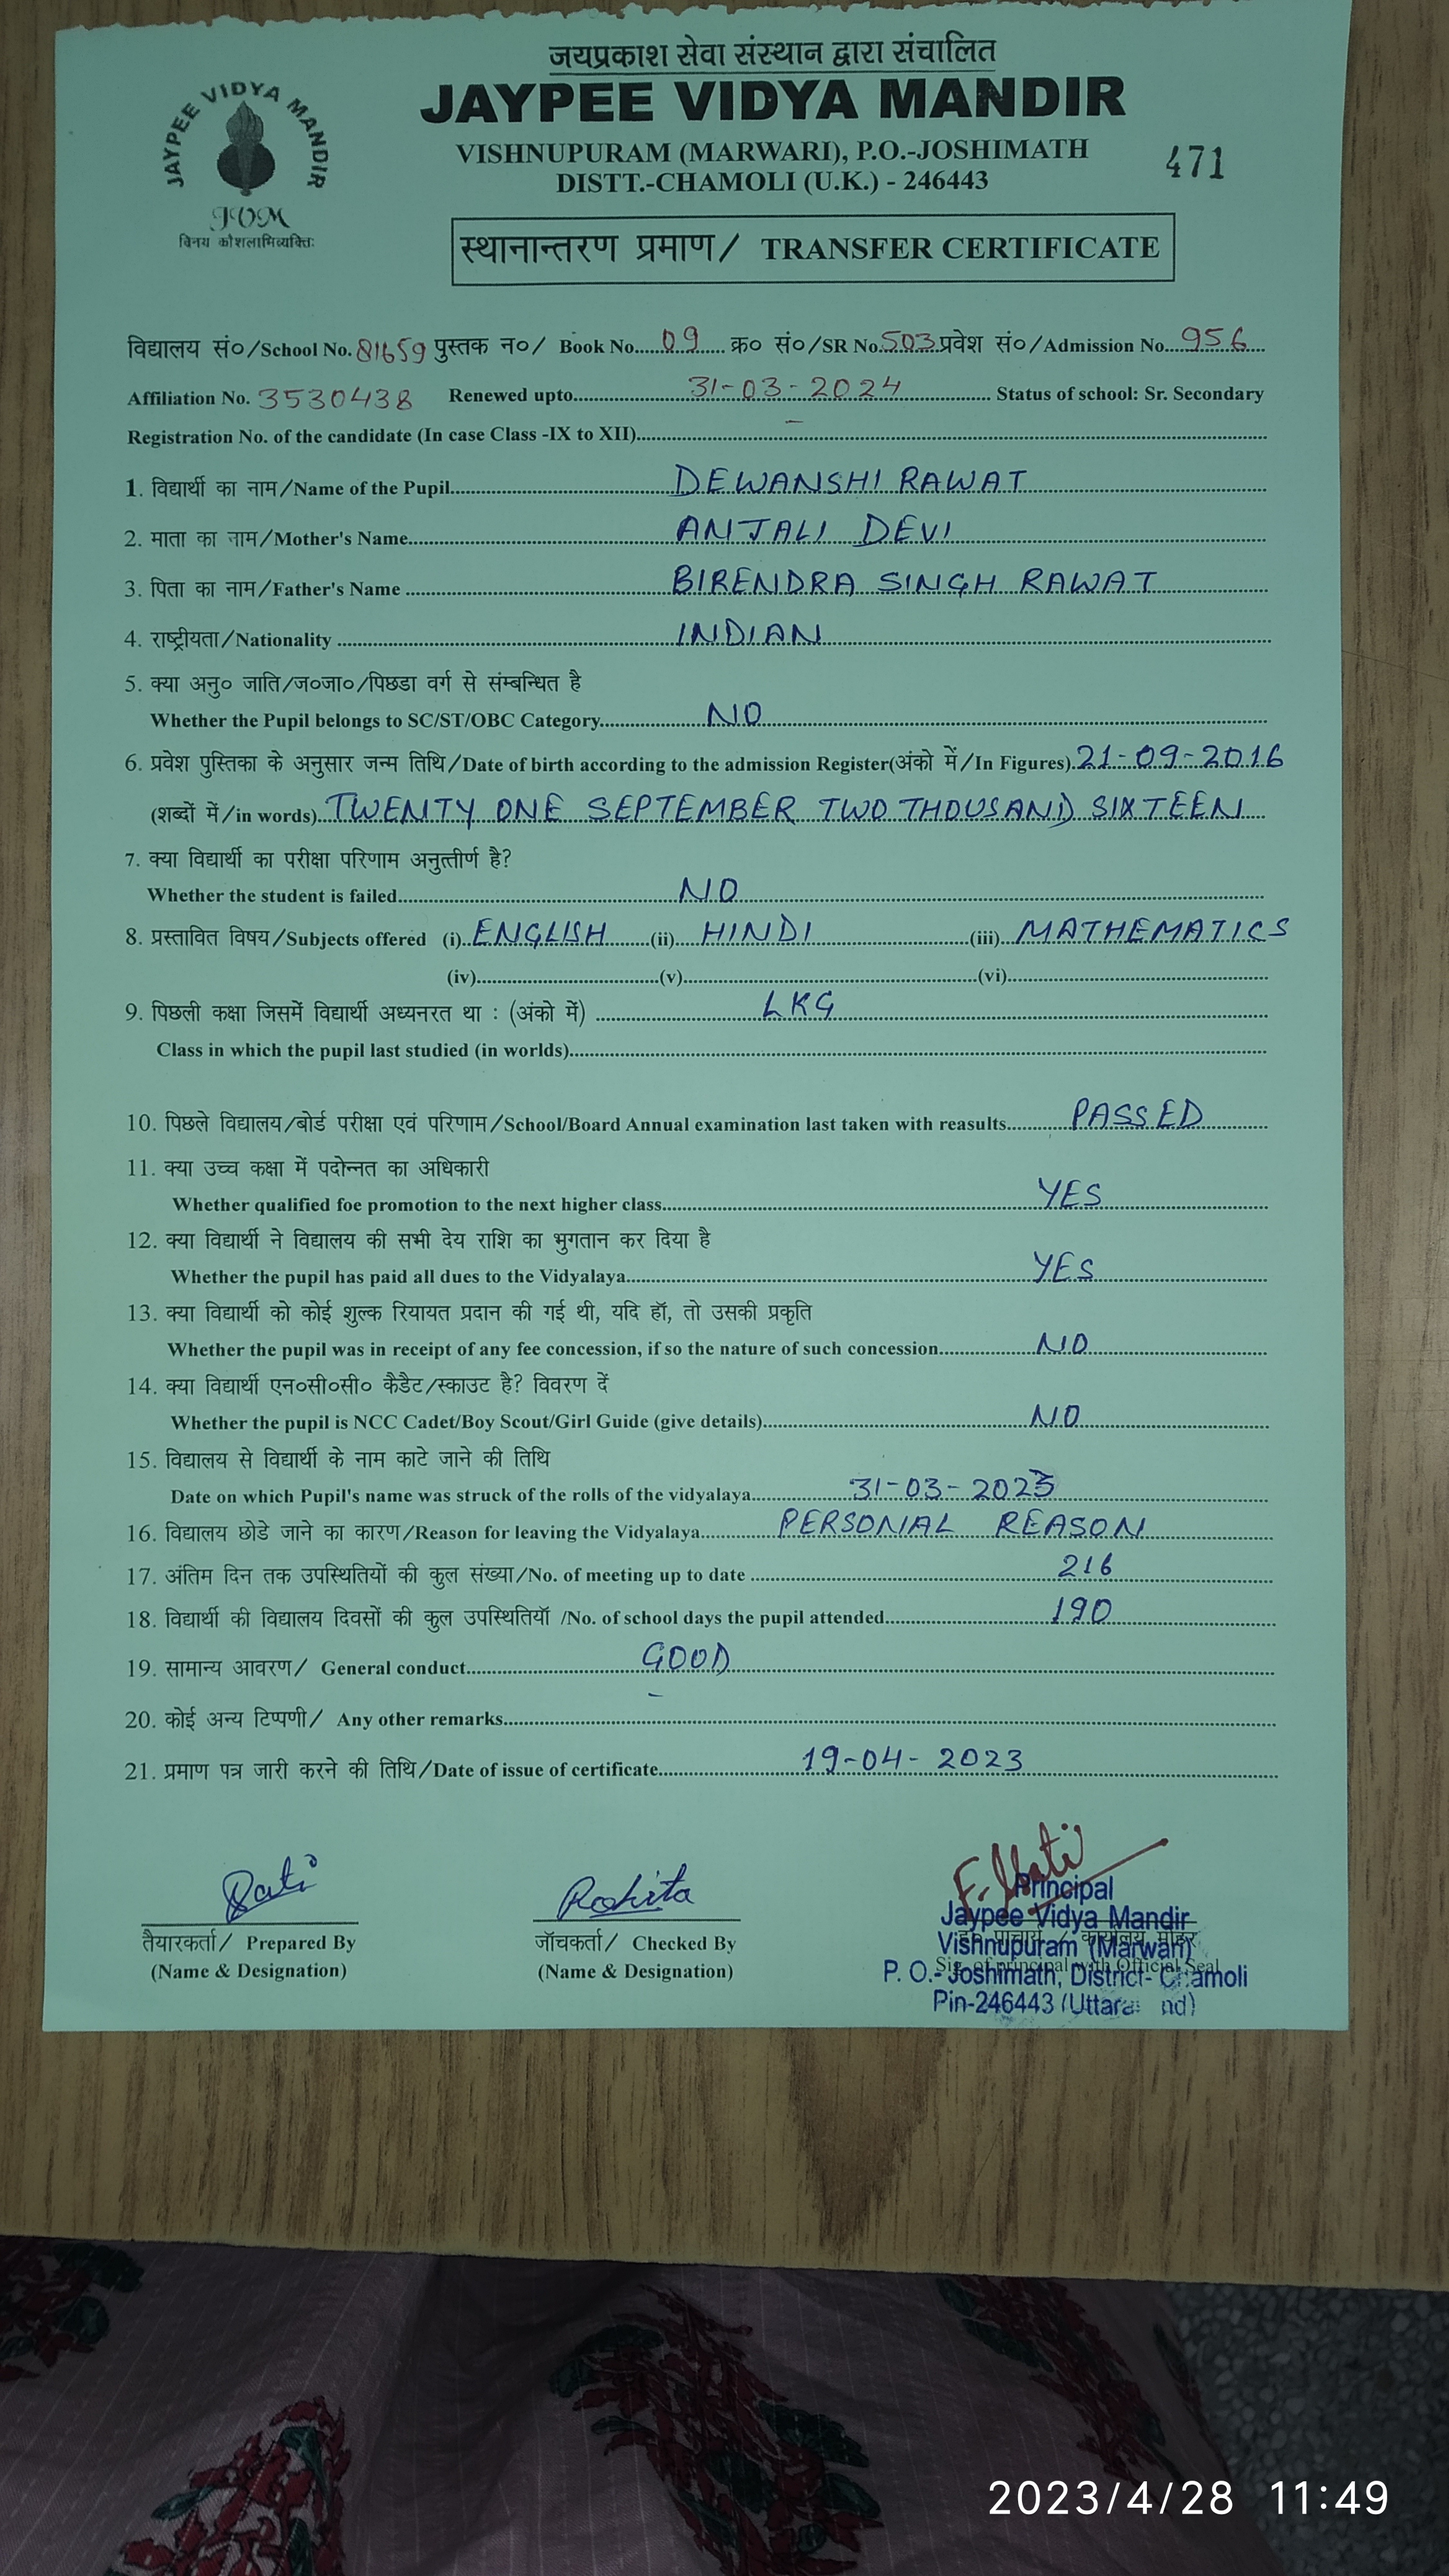 जयप्रकाश सेवा संस्थान द्वारा संचालित
JAYPEE VIDYA MANDIR
JAYPEE VIDYA MANDIR
VISHNUPURAM (MARWARI), P.O.-JOSHIMATH
471
DISTT.-CHAMOLI (U.K.) - 246443
JVM
विनय कौशलाभिव्यक्तिः
स्थानान्तरण प्रमाण/ TRANSFER CERTIFICATE
विद्यालय सं०/School No. 81659 पुस्तक न०/ Book No. 09 क्र० सं०/SR No. 503 प्रवेश सं०/Admission No. 956
Affiliation No. 3530438 Renewed upto 31-03-2024 Status of school: Sr. Secondary
Registration No. of the candidate (In case Class -IX to XII) -
1. विद्यार्थी का नाम/Name of the Pupil DEWANSHI RAWAT
2. माता का नाम/Mother's Name ANJALI DEVI
3. पिता का नाम/Father's Name BIRENDRA SINGH RAWAT
4. राष्ट्रीयता/Nationality INDIAN
5. क्या अनु० जाति/ज०जा०/पिछडा वर्ग से संम्बन्धित है
Whether the Pupil belongs to SC/ST/OBC Category NO
6. प्रवेश पुस्तिका के अनुसार जन्म तिथि/Date of birth according to the admission Register(अंको में/In Figures) 21-09-2016
(शब्दों में/in words) TWENTY ONE SEPTEMBER TWO THOUSAND SIXTEEN
7. क्या विद्यार्थी का परीक्षा परिणाम अनुत्तीर्ण है?
Whether the student is failed NO
8. प्रस्तावित विषय/Subjects offered (i) ENGLISH (ii) HINDI (iii) MATHEMATICS
(iv) (v) (vi)
9. पिछली कक्षा जिसमें विद्यार्थी अध्यनरत था : (अंको में) LKG
Class in which the pupil last studied (in worlds)
10. पिछले विद्यालय/बोर्ड परीक्षा एवं परिणाम/School/Board Annual examination last taken with reasults PASSED
11. क्या उच्च कक्षा में पदोन्नत का अधिकारी
Whether qualified foe promotion to the next higher class YES
12. क्या विद्यार्थी ने विद्यालय की सभी देय राशि का भुगतान कर दिया है
Whether the pupil has paid all dues to the Vidyalaya YES
13. क्या विद्यार्थी को कोई शुल्क रियायत प्रदान की गई थी, यदि हॉ, तो उसकी प्रकृति
Whether the pupil was in receipt of any fee concession, if so the nature of such concession NO
14. क्या विद्यार्थी एन०सी०सी० कैडैट/स्काउट है? विवरण दें
Whether the pupil is NCC Cadet/Boy Scout/Girl Guide (give details) NO
15. विद्यालय से विद्यार्थी के नाम काटे जाने की तिथि
Date on which Pupil's name was struck of the rolls of the vidyalaya 31-03-2023
16. विद्यालय छोडे जाने का कारण/Reason for leaving the Vidyalaya PERSONIAL REASON
17. अंतिम दिन तक उपस्थितियों की कुल संख्या/No. of meeting up to date 216
18. विद्यार्थी की विद्यालय दिवसों की कुल उपस्थितियॉ /No. of school days the pupil attended 190
19. सामान्य आवरण/ General conduct GOOD
20. कोई अन्य टिप्पणी/ Any other remarks -
21. प्रमाण पत्र जारी करने की तिथि/Date of issue of certificate 19-04-2023
Rohita
तैयारकर्ता/ Prepared By
(Name & Designation)
जॉचकर्ता/ Checked By
(Name & Designation)
Principal
Jaypee Vidya Mandir
Vishnupuram (Marwari)
Sig. of principal with Official Seal
P. O.- Joshimath, District- Chamoli
Pin-246443
2023/4/28 11:49